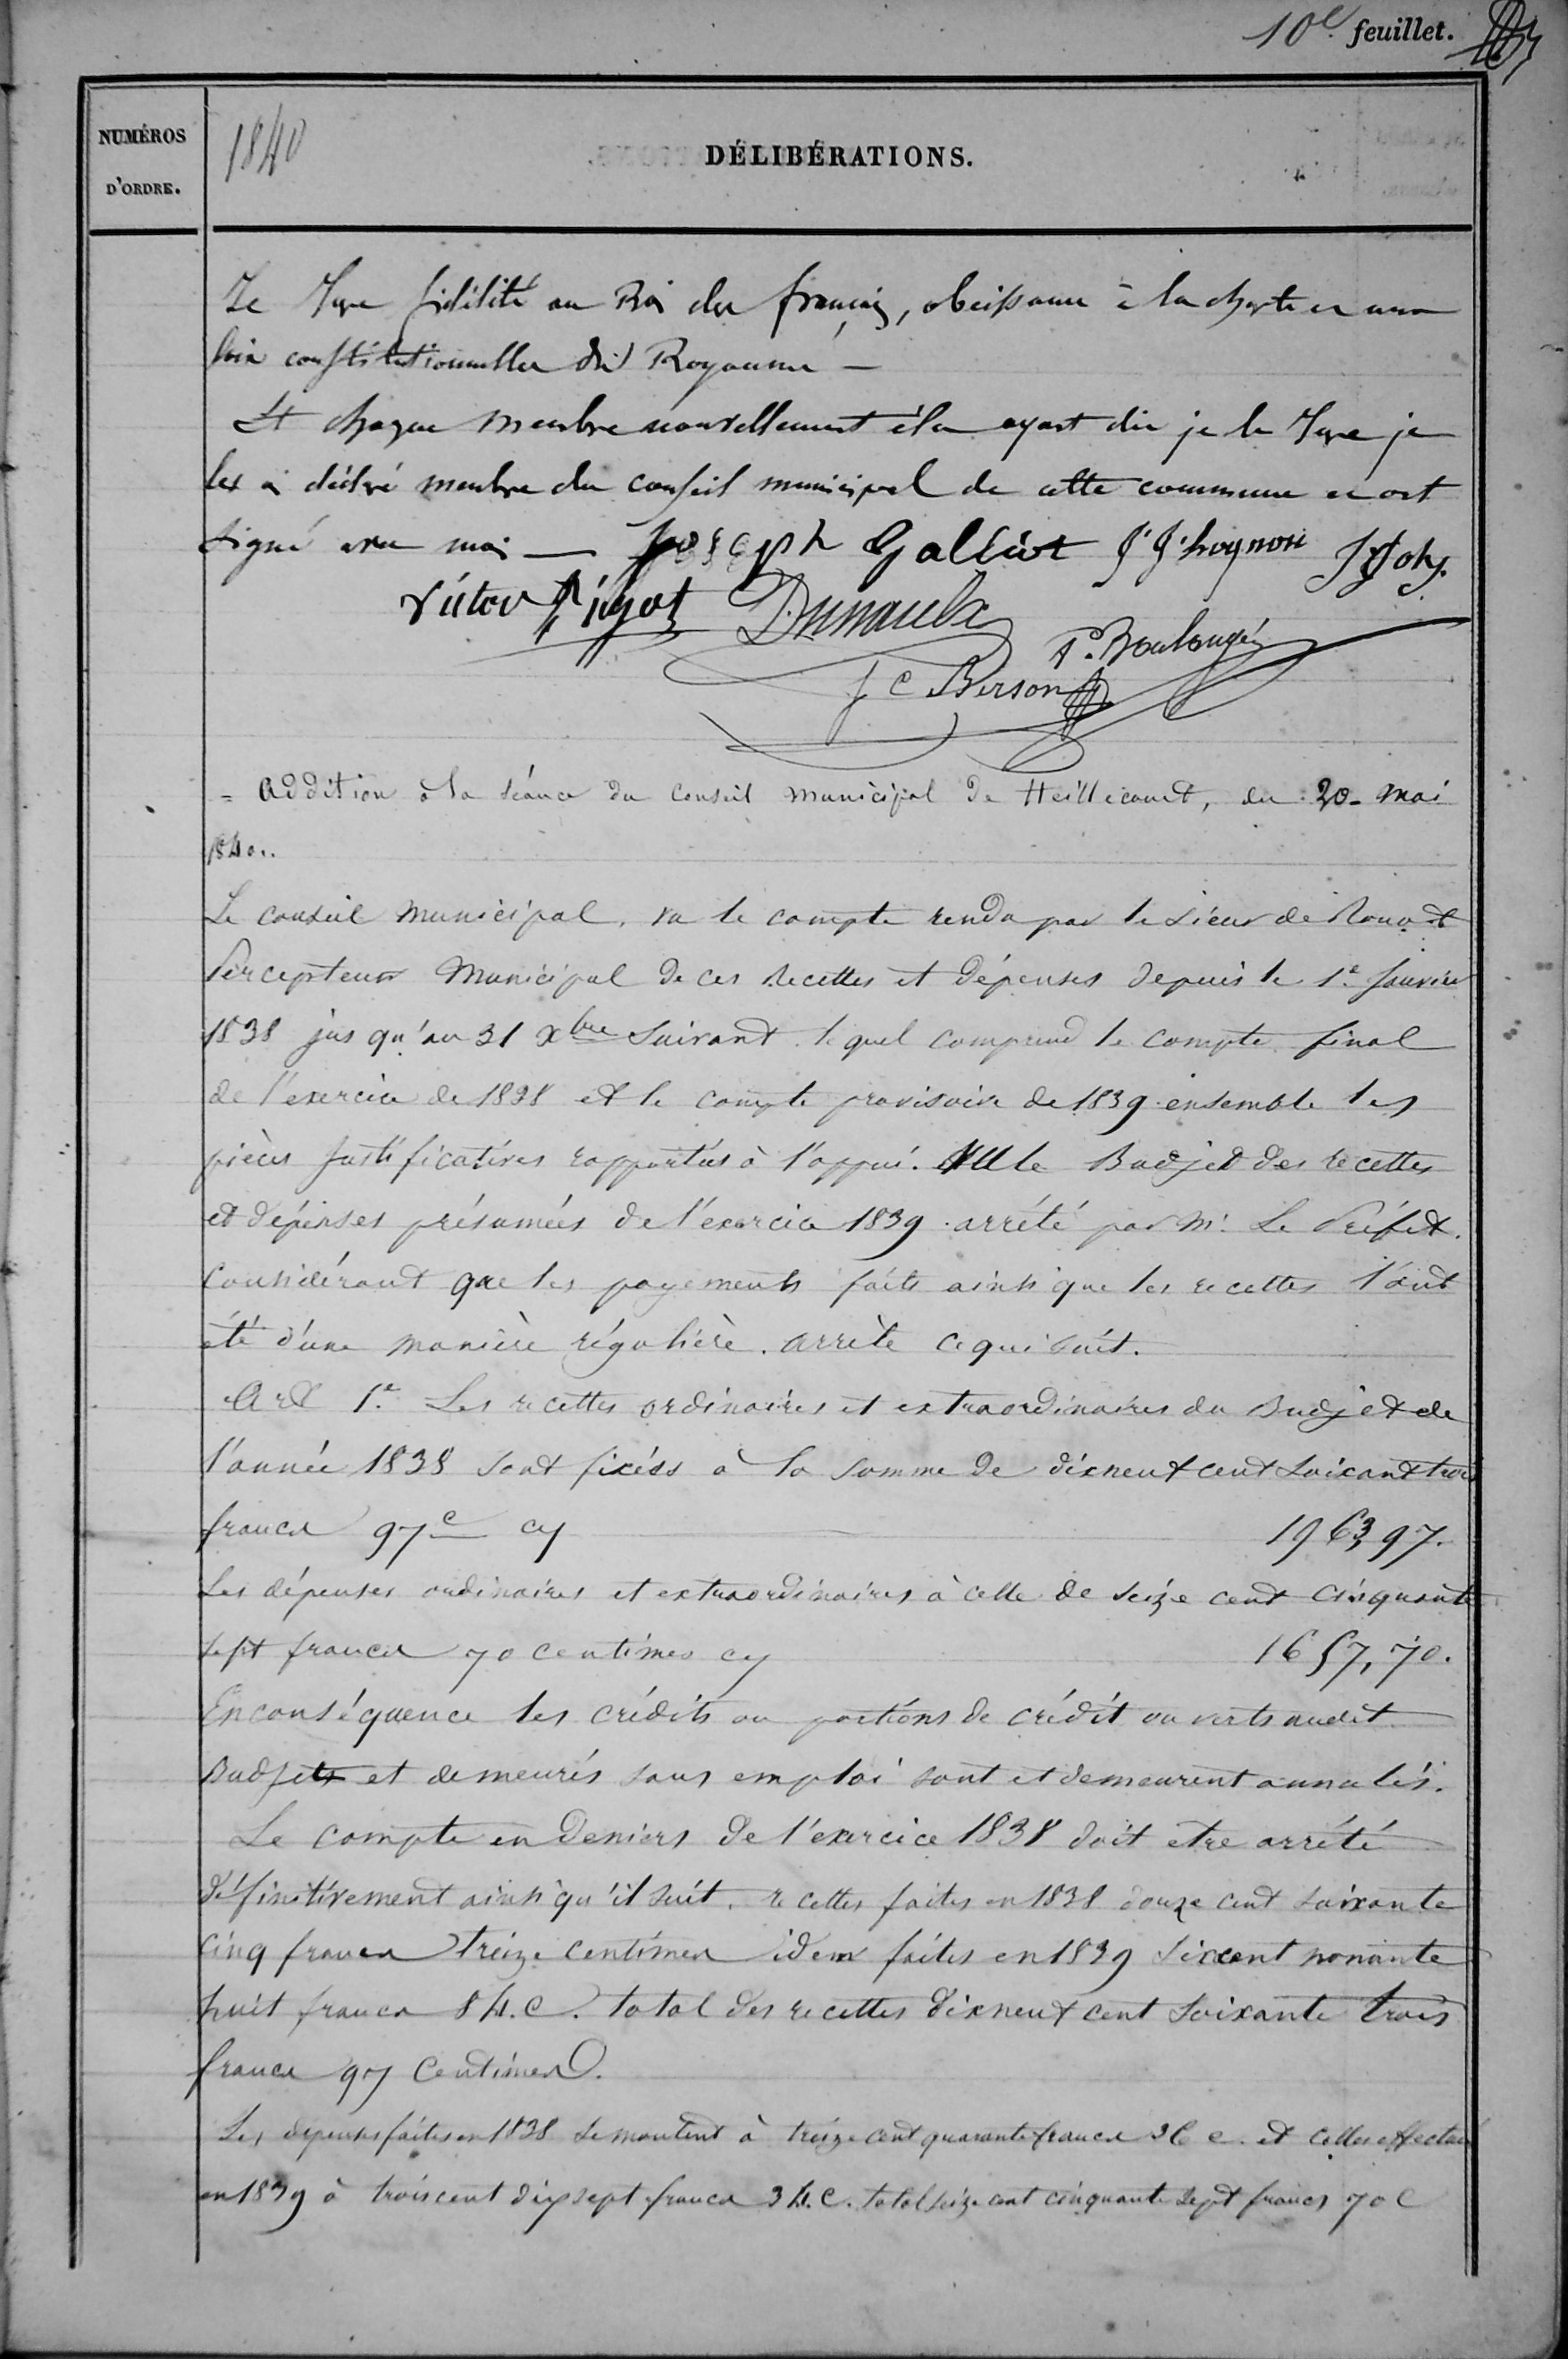 10e. feuillet.
NUMÉROS
D'ORDRE.
1840
DÉLIBÉRATIONS.
Je Jure fidélité au Roi des français, obeissance à la charte et aux
loix constitutionnelles du Royaume —
Et chaque membre nouvellement élu ayant dit je le Jure je
les ai déclaré membre du conseil municipal de cette commune et ont
signé avec moi — Joseph Galliot
Victor Pigot
J C Berson
= Addition à la séance du Conseil Municipal de Heillecourt, du 20 - Mai
1840..
Le conseil Municipal, vu le compte rendu par le sieur de
Percepteur Municipal de ces Recettes et dépenses depuis le 1e. Janvier
1838 jus qu'au 31 Xbre Suivant lequel comprend le compte final
de l'exercice de 1838 et le compte provisoire de 1839 ensemble les
pièces Justificatives rapportés à l'appui. Vu le Budjet des recettes
et dépenses présumées de l'exercice 1839 arrêté par Mr. Le Préfet.
Considérant que les payements faits ainsi que les recettes l'ont
été d'une manière régulière. arrête ce qui suit.
Art 1e. Les recettes ordinaires et extraordinaires du Budjet de
l'année 1838 sont fixéss à la somme de dixneuf cent soixant trois
francs 97c cy 1963 97.
Les dépenses ordinaires et extraordinaires à celle de seize cent cinquante
sept francs 70 centimes cy 1657,70.
En conséquence les crédits ou portions de crédit ouverts audit
Budjet et demeurés sans emploi sont et demeurent annulés.
Le compte en deniers de l'exercice 1838 doit etre arrété
définitivement ainsi qu'il suit. recettes faites en 1838 douze cent soixante
cinq francs treize centimes idem faites en 1839 sixcent nonante
huit francs 84. C. total des recettes dixneuf cent soixante trois
francs 97 Centimes.
Les dépenses faites en 1838 se montent à treize cent quarante francs 36 c. et celles effectués
en 1839 à troiscent dixsept francs 34. C. total seize cent cinquante sept francs 70 C